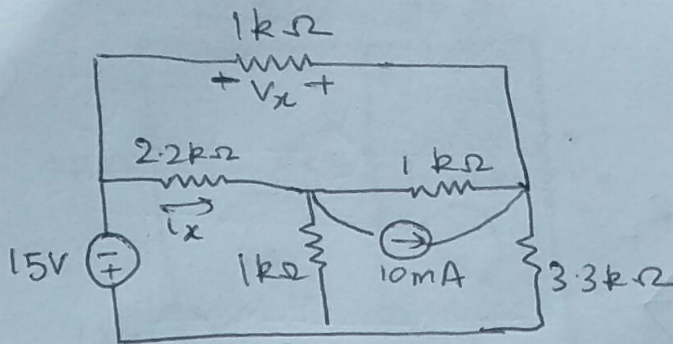 1kΩ
+ Vx +
2.2kΩ
1kΩ
ix
15V
- +
1kΩ
10mA
3.3kΩ